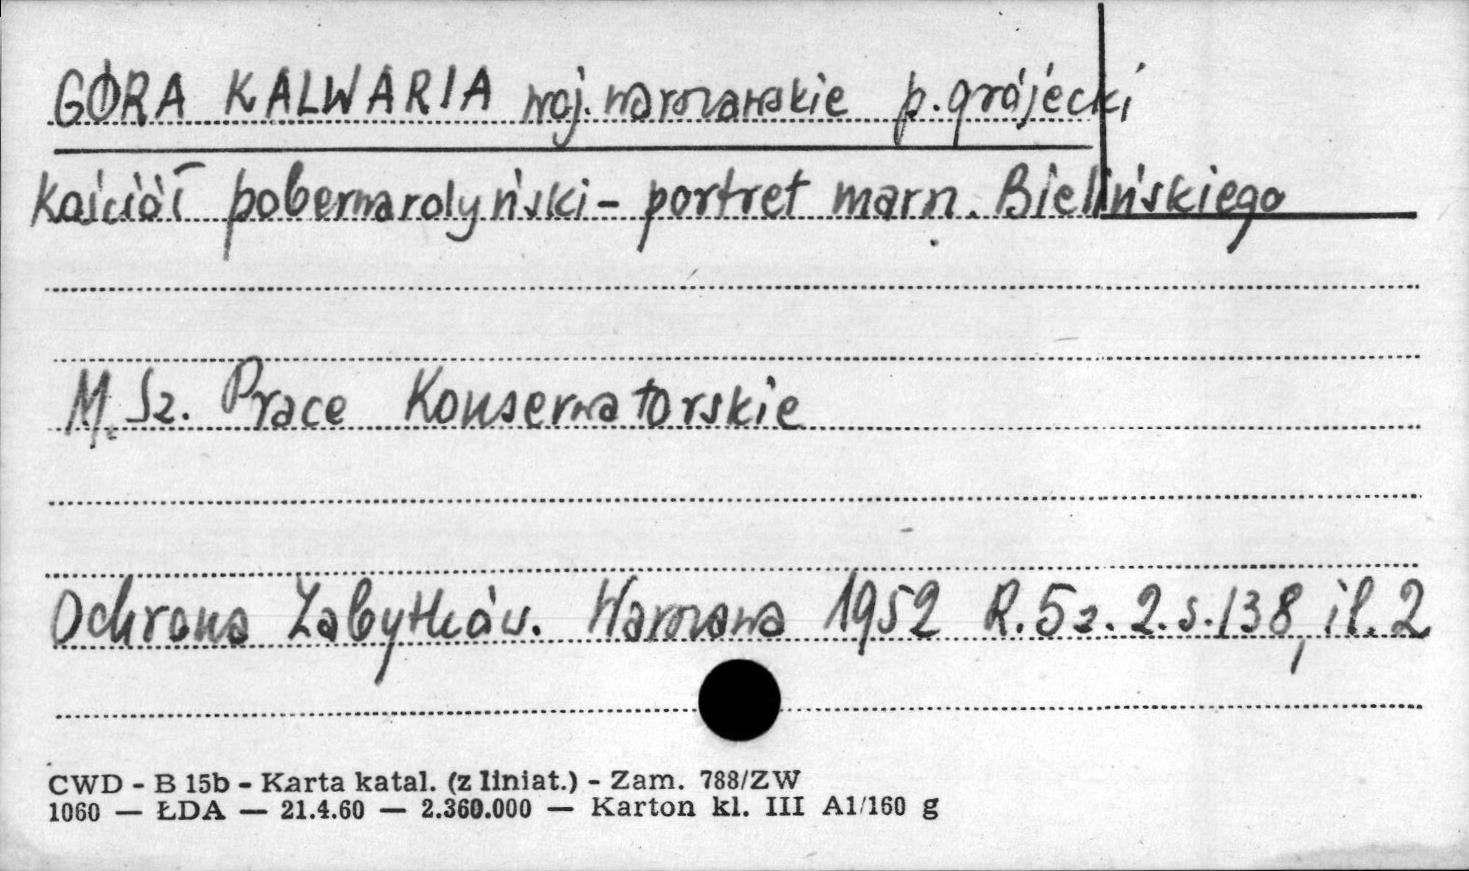 GÓRA KALWARIA woj. warszawskie p. grójecki
Kościół pobernardyński - portret marsz. Bielińskiego
M. Sz. Prace Konserwatorskie
Ochrona Zabytków. Warszawa 1952 R. 5 z. 2. s. 138, il. 2
CWD - B 15b - Karta katal. (z liniat.) - Zam. 788/ZW
1060 — ŁDA — 21.4.60 — 2.360.000 — Karton kl. III A1/160 g